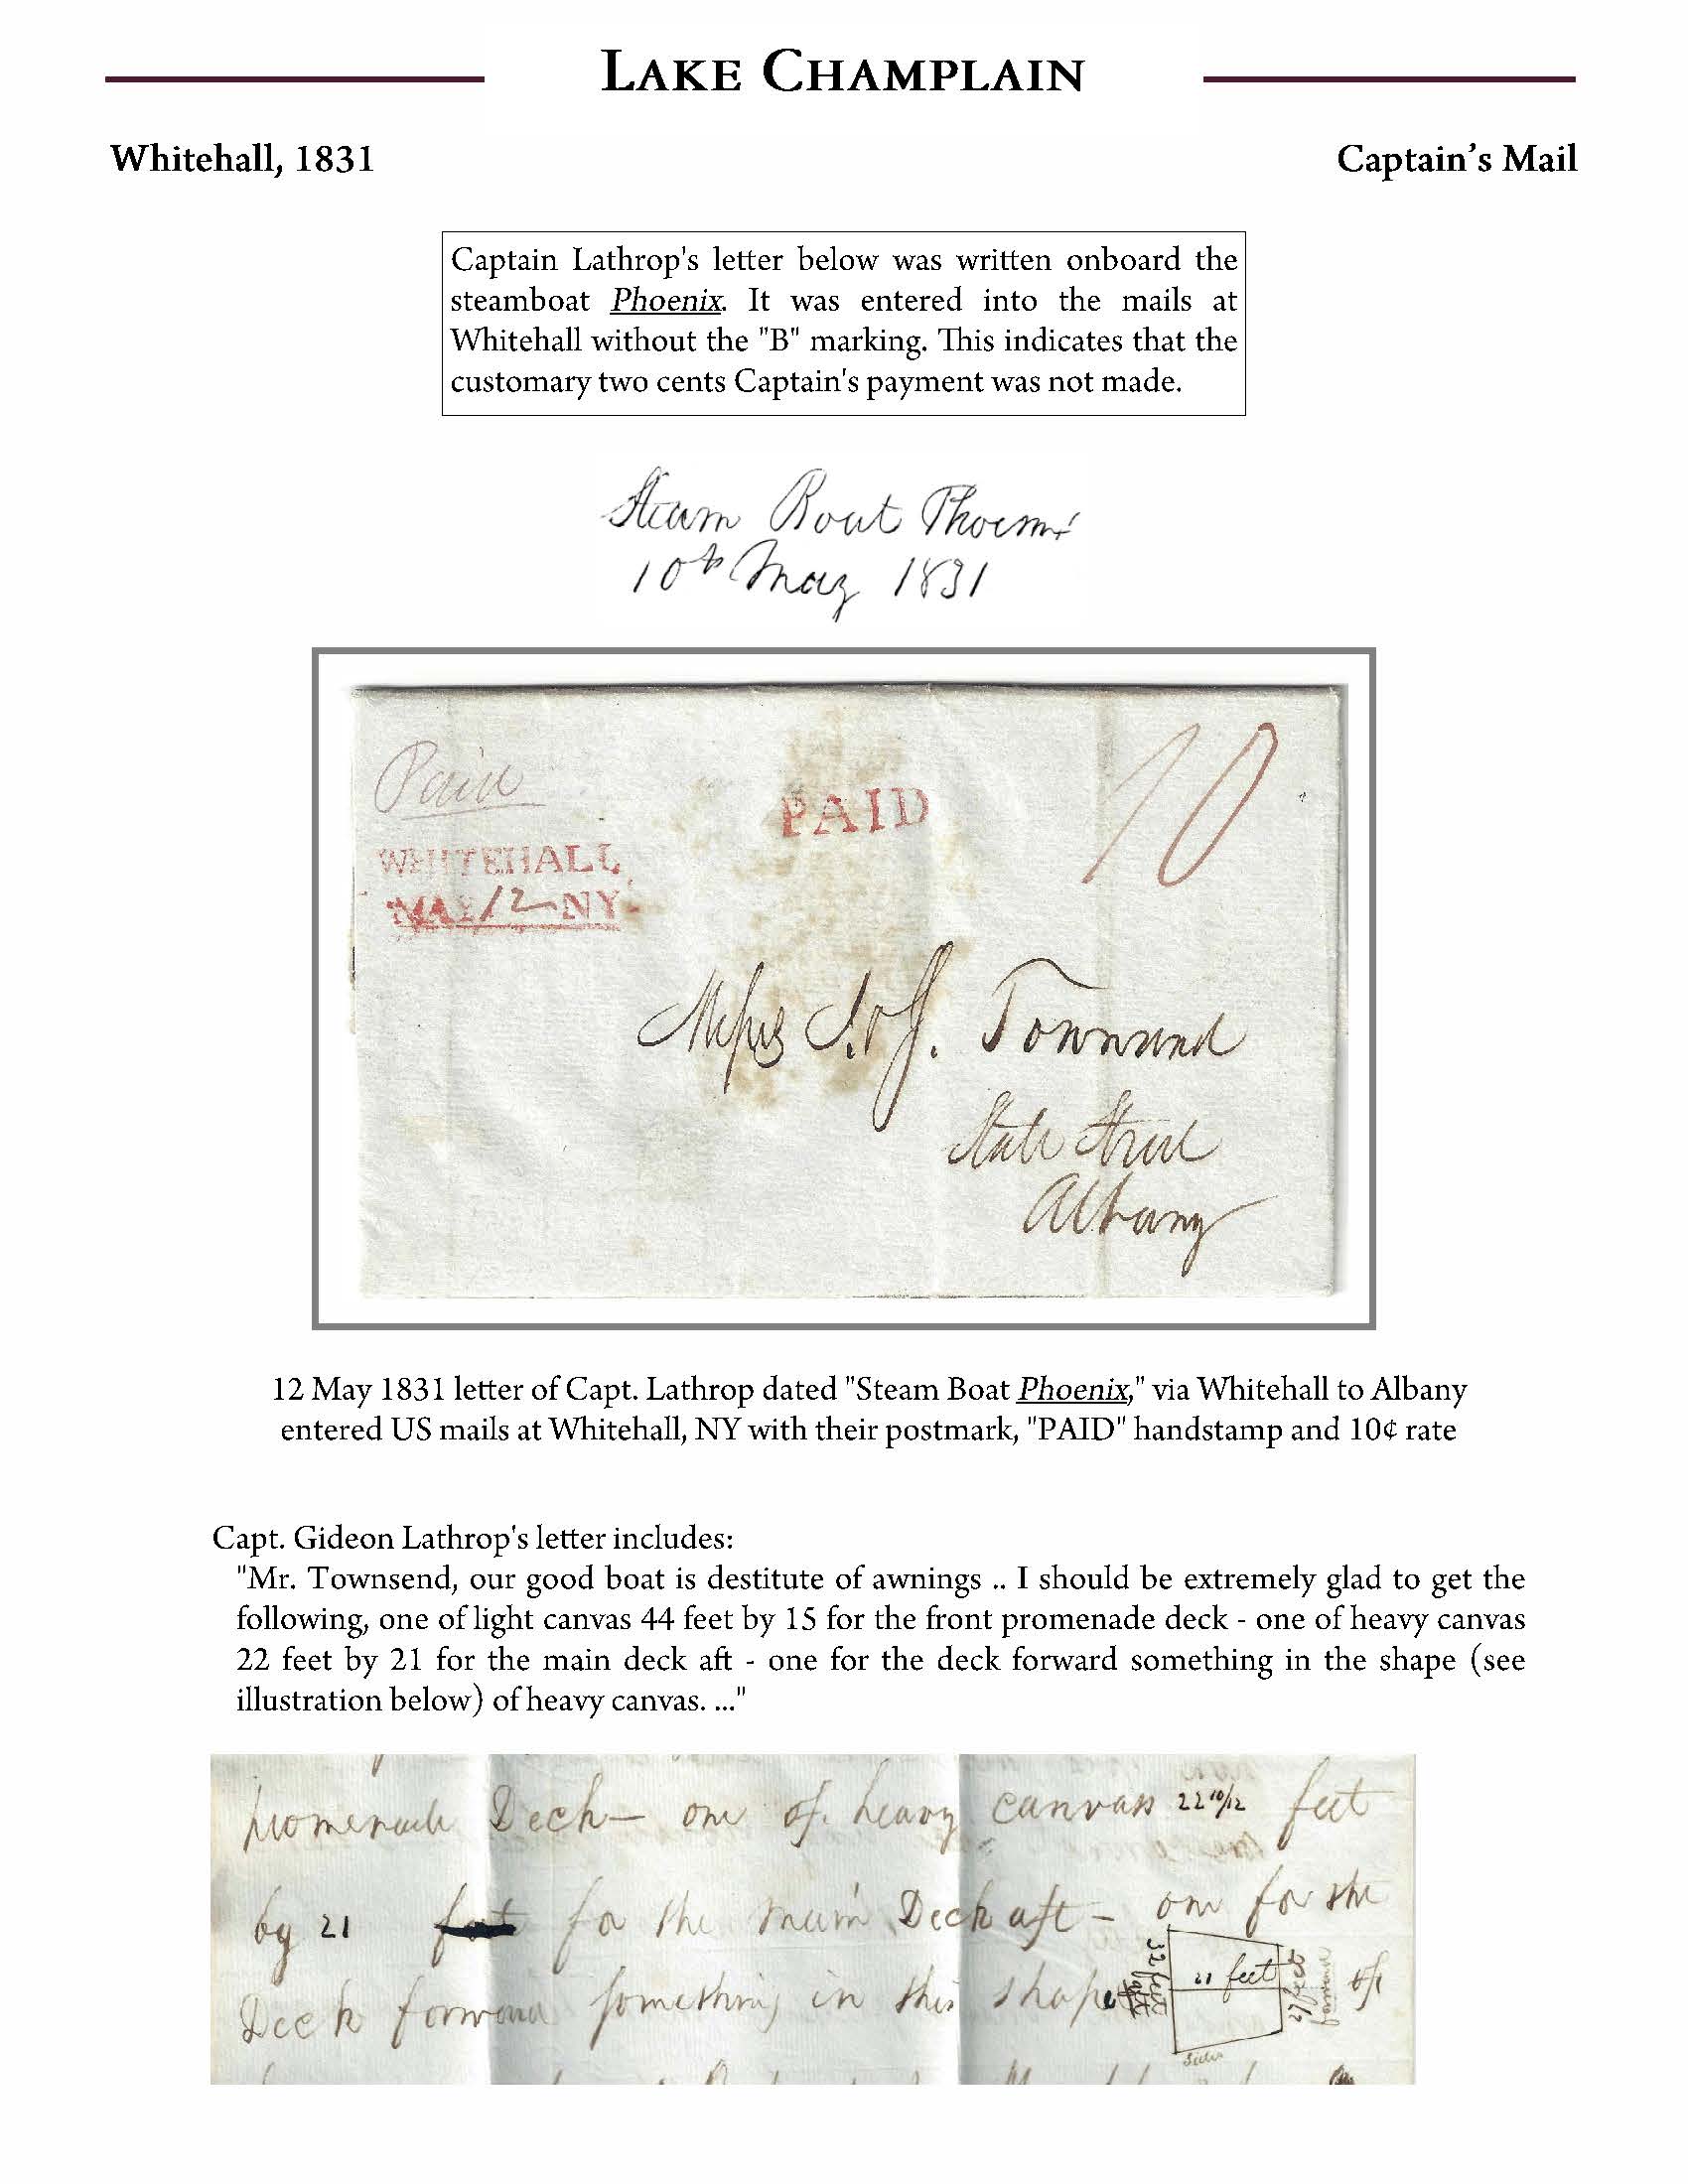 LAKE CHAMPLAIN
Whitehall, 1831
Captain's Mail
Captain Lathrop's letter below was written onboard the
steamboat Phoenix. It was entered into the mails at
Whitehall without the "B" marking. This indicates that the
customary two cents Captain's payment was not made.
Steam Boat Phoenix
10th May 1831
Paid
PAID
10
WHITEHALL
MAY 12 NY
Messrs I. & J. Townsend
State Street
Albany
12 May 1831 letter of Capt. Lathrop dated "Steam Boat Phoenix," via Whitehall to Albany
entered US mails at Whitehall, NY with their postmark, "PAID" handstamp and 10¢ rate
Capt. Gideon Lathrop's letter includes:
"Mr. Townsend, our good boat is destitute of awnings .. I should be extremely glad to get the
following, one of light canvas 44 feet by 15 for the front promenade deck - one of heavy canvas
22 feet by 21 for the main deck aft - one for the deck forward something in the shape (see
illustration below) of heavy canvas. ..."
promenade Deck— one of heavy canvass 22 10/12 feet
by 21 for the main Deck aft — one for the
Deck forward something in this shape of
32 feet
21 feet